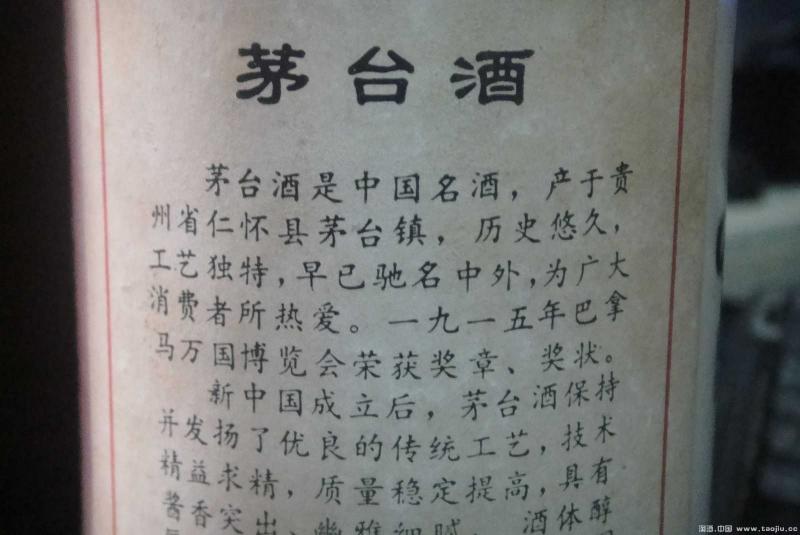 茅台酒
茅台酒是中国名酒，产于贵
州省仁怀县茅台镇，历史悠久，
工艺独特，早已驰名中外，为广大
消费者所热爱。一九一五年巴拿
马万国博览会荣获奖章、奖状。
新中国成立后，茅台酒保持
并发扬了优良的传统工艺，技术
精益求精，质量稳定提高，具有
酱香突出、幽雅细腻、酒体醇
淘酒.中国 www.taojiu.cc